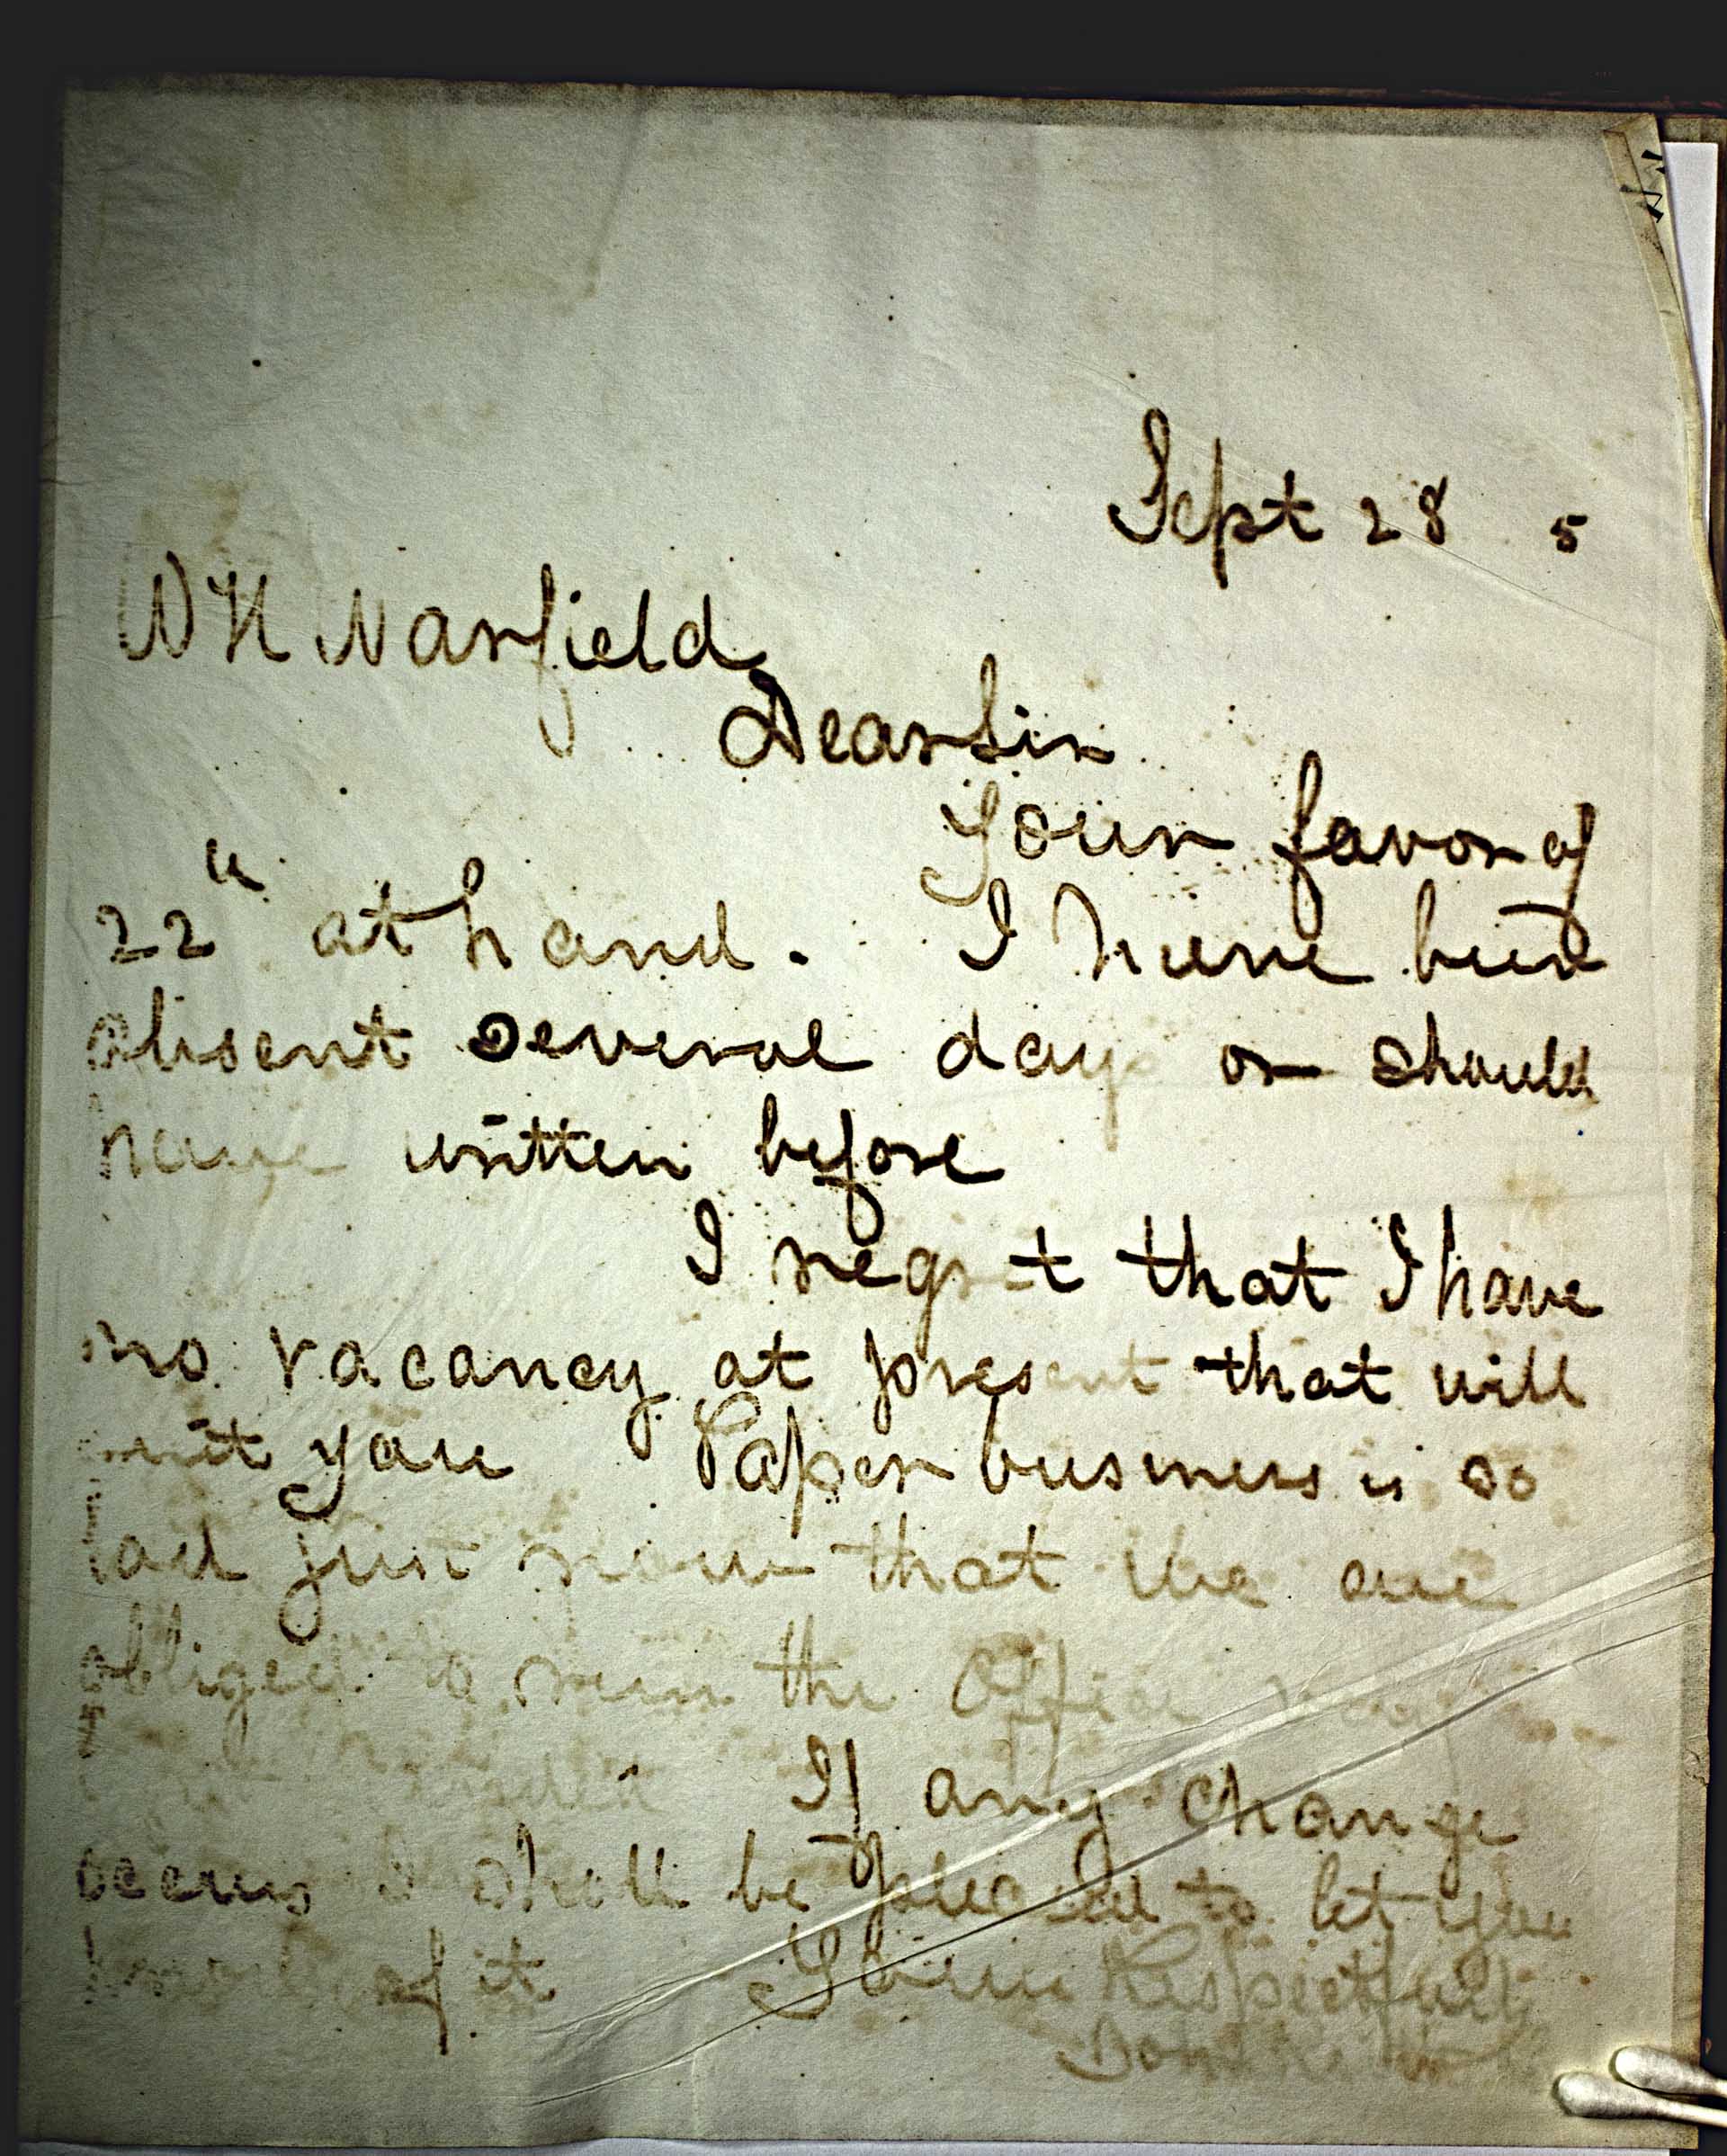 Sept 28 5
W H Warfield
Dear Sir
Your favor of
22" at hand. I have been
absent several days or should
have written before
I regret that I have
no vacancy at present that will
suit you Paper business is so
bad just now that we are
obliged to run the Office
If any change
occurs I shall be pleased to let you
know of it Yours Respectfully